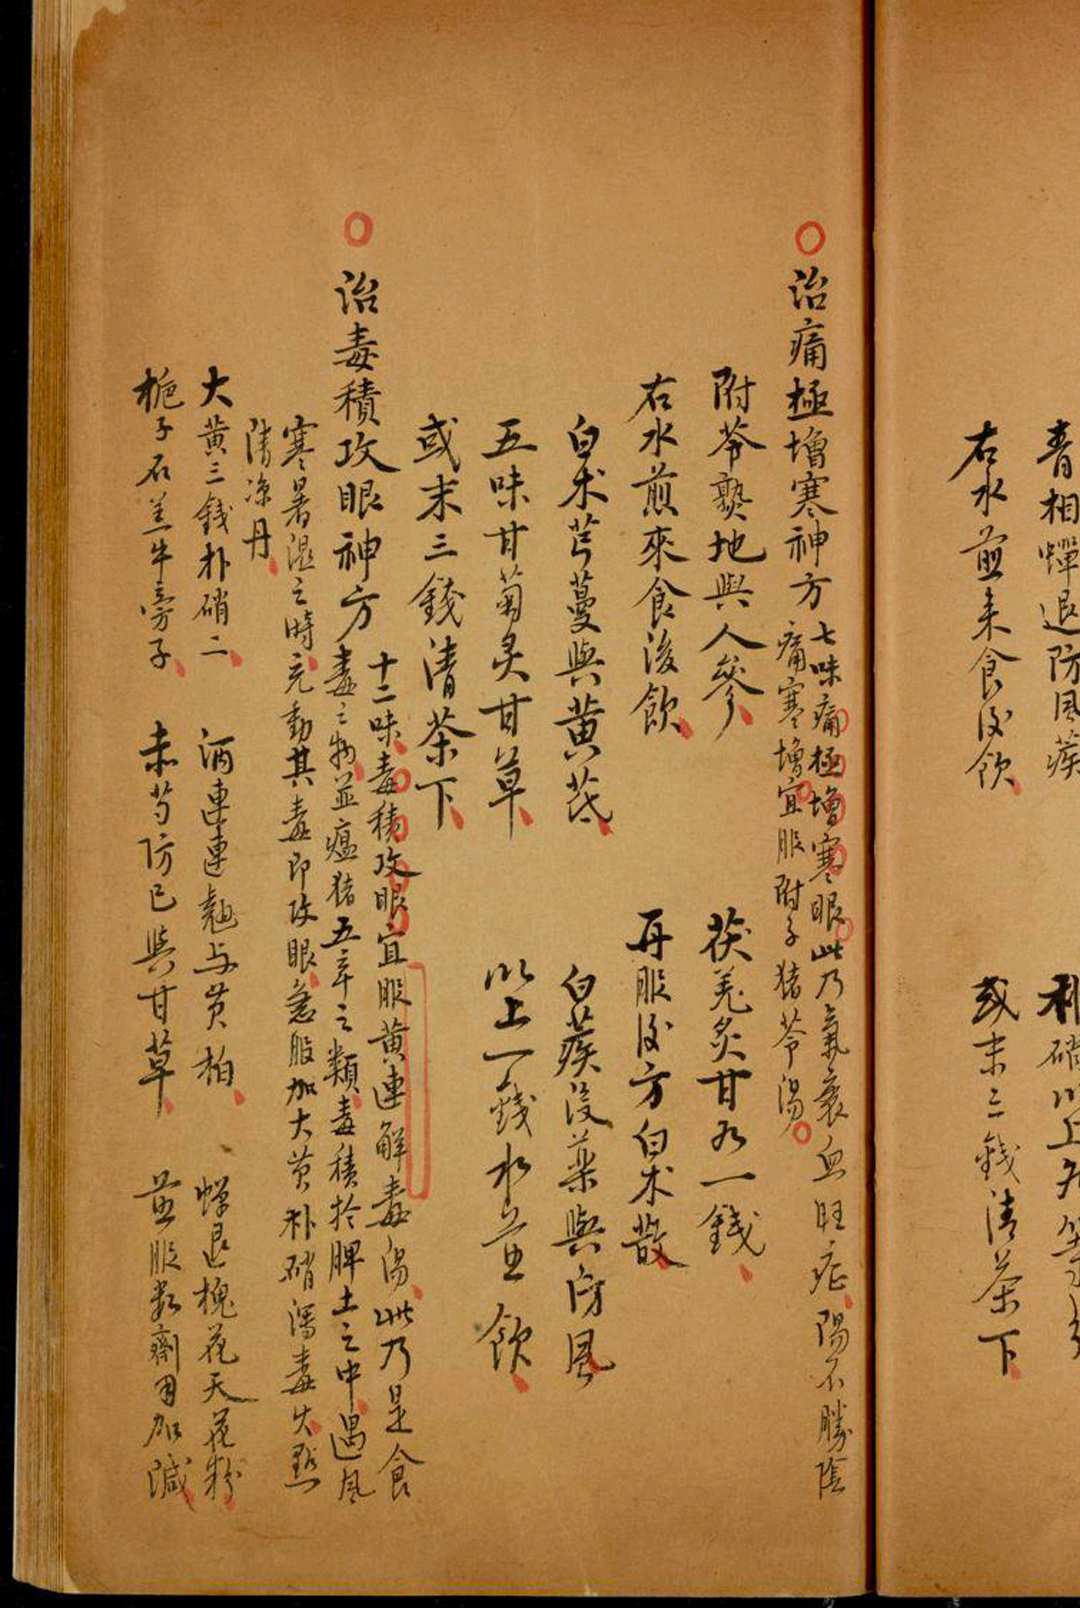 青相蟬退防風蒺
右水煎来食後飲
或末三錢清茶下
治痛極增寒神方
七味痛極增寒眼此乃氣衰血旺症陽不勝陰
痛寒增宜服附子猪苓湯
附苓熟地與人參 茯羌炙甘各一錢
右水煎來食後飲 再服後方白术散
白术芎蔓與黄芪 白蒺後藥與防風
五味甘菊炙甘草 以上一錢水煎飲
或末三錢清茶下
治毒積攻眼神方
十二味毒積攻眼宜服黄連解毒湯此乃是食
毒之物並瘟猪五辛之類毒積於脾土之中遇風
寒暑濕之時充動其毒即攻眼急服加大黄朴硝瀉毒火點
清凉丹
大黄三錢朴硝二 酒連連翹与黄柏 蟬退槐花天花粉
梔子石羔牛旁子 赤芍防已與甘草 煎服数劑用加減